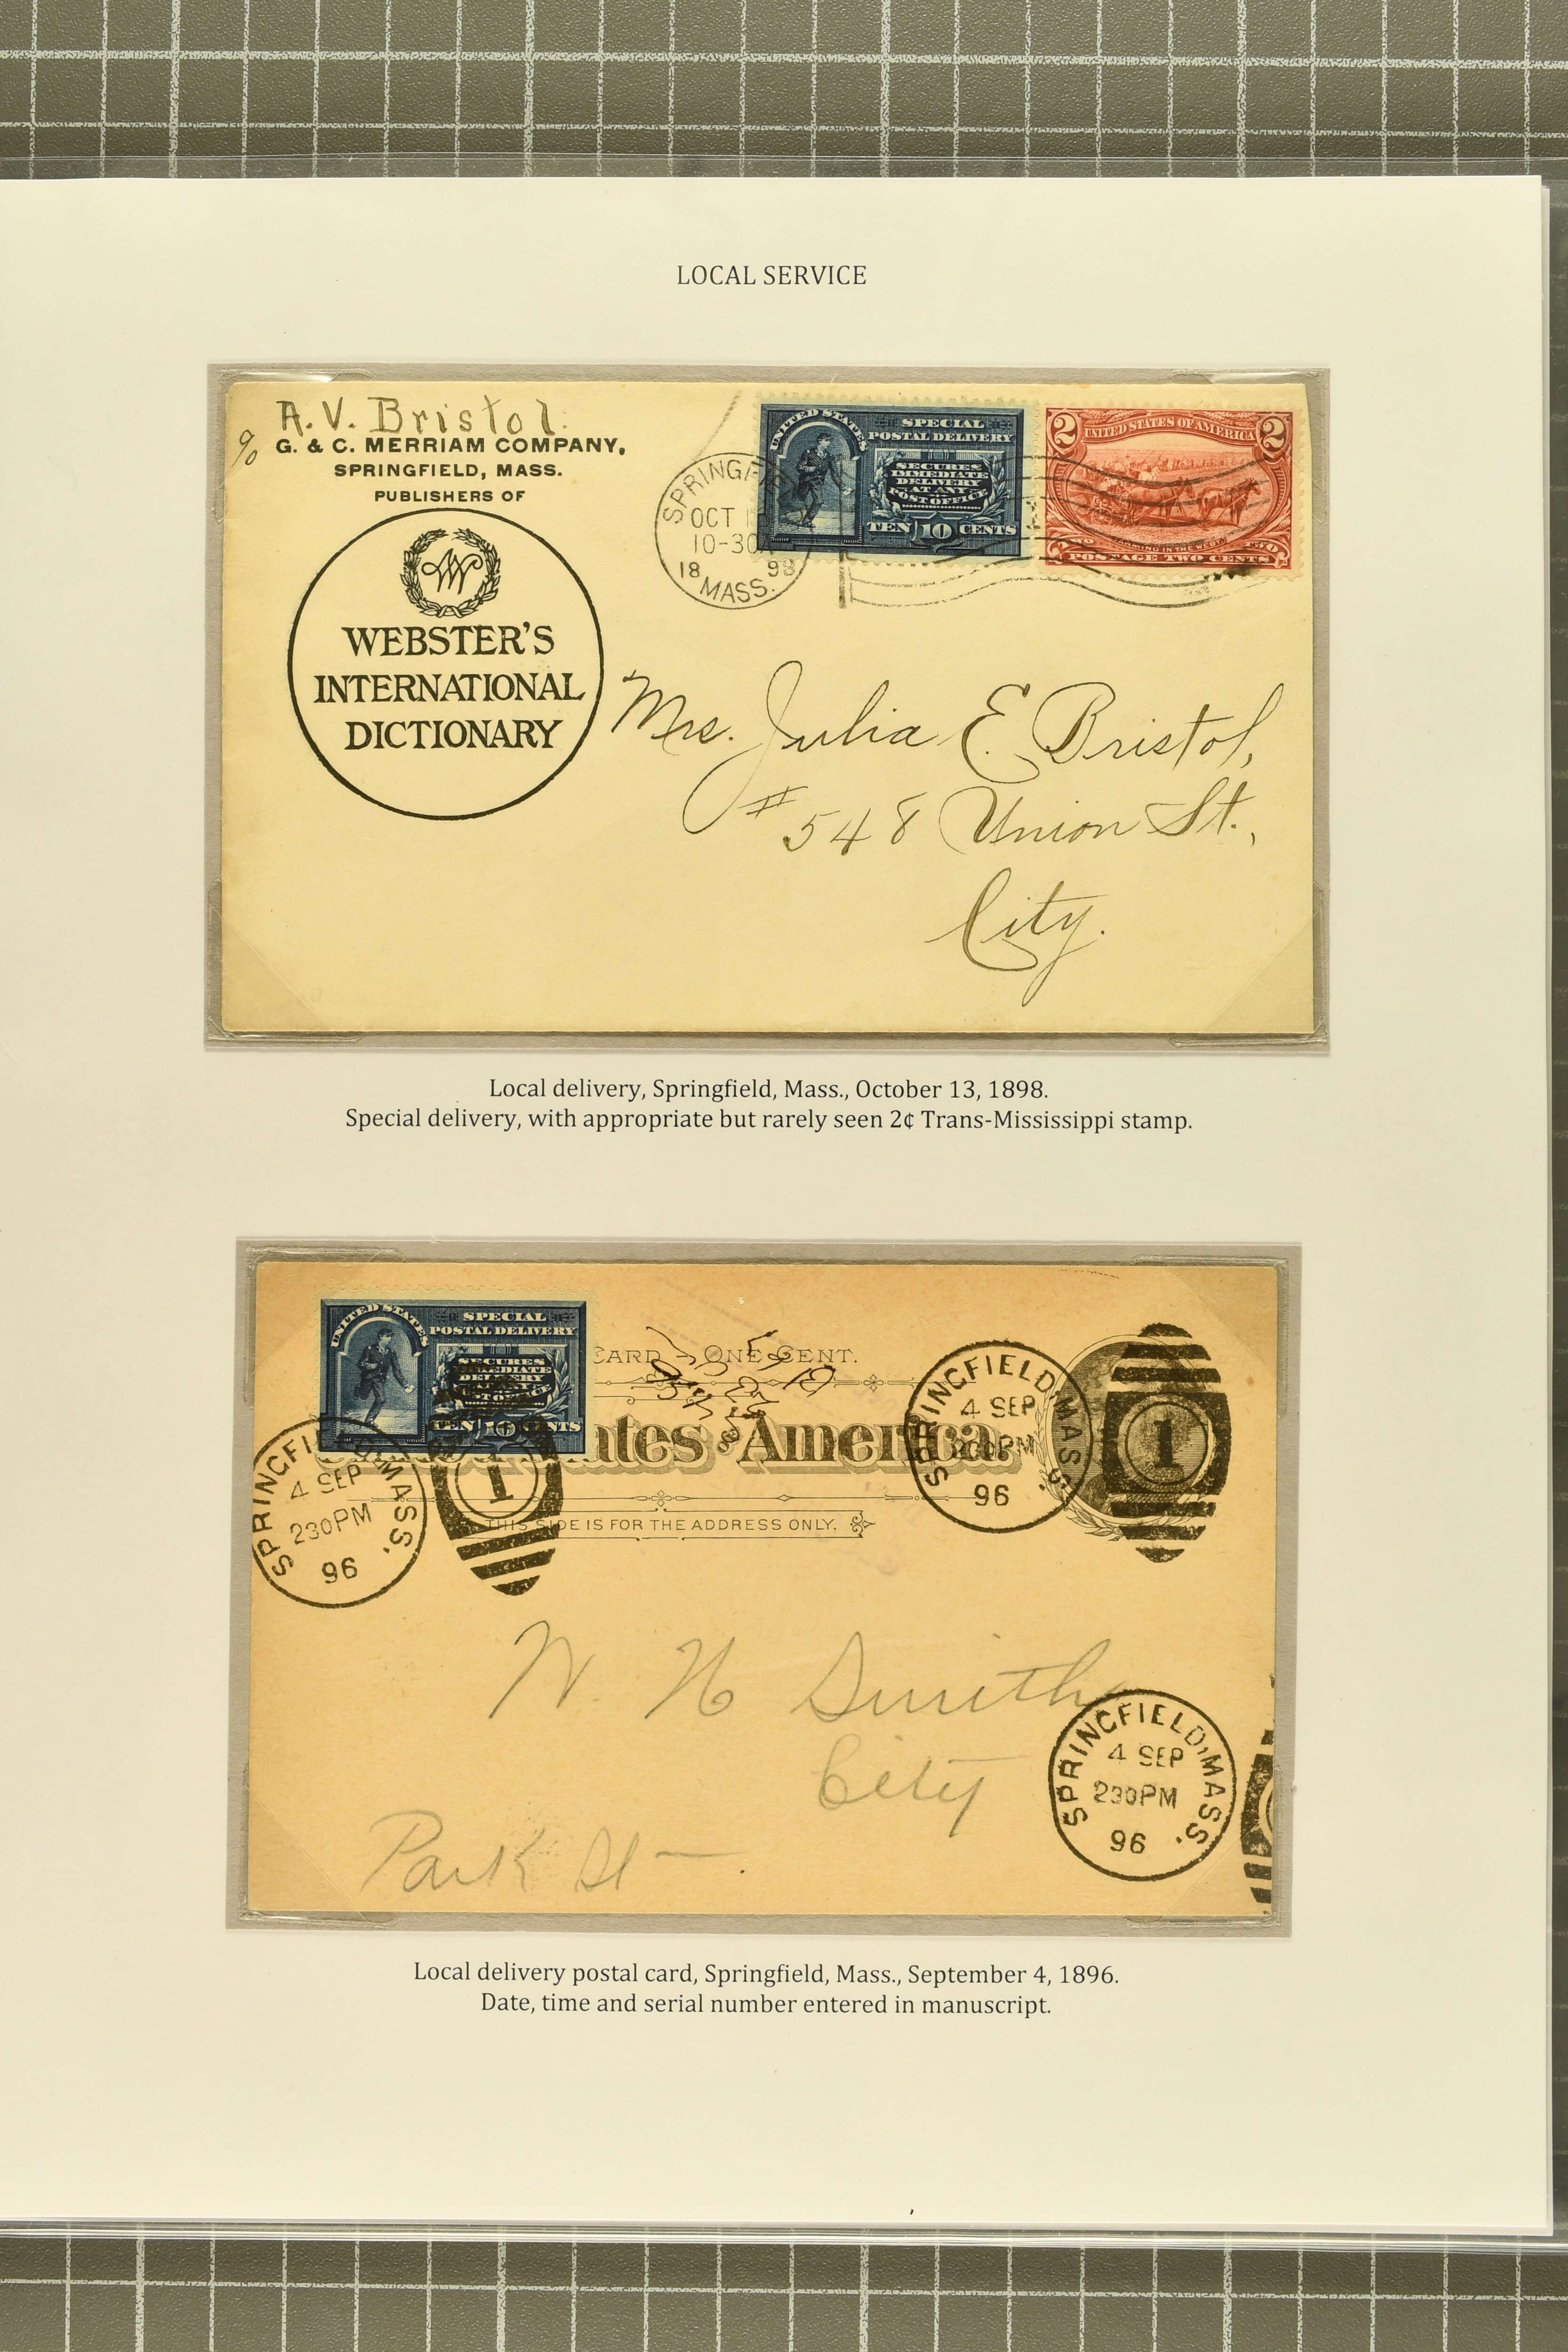 LOCAL SERVICE
A. V. Bristol.
% G. & C. MERRIAM COMPANY,
SPRINGFIELD, MASS.
PUBLISHERS OF
W
WEBSTER'S
INTERNATIONAL
DICTIONARY
SPRINGFIE
OCT 1
10-30A
18 98
MASS.
UNITED STATES
SPECIAL
POSTAL DELIVERY
SECURES
IMMEDIATE
DELIVERY
AT ANY
POST OFFICE
TEN 10 CENTS
2 UNITED STATES OF AMERICA 2
POSTAGE TWO CENTS
Mrs. Julia E. Bristol,
# 548 Union St.,
City.
Local delivery, Springfield, Mass., October 13, 1898.
Special delivery, with appropriate but rarely seen 2¢ Trans-Mississippi stamp.
UNITED STATES
SPECIAL
POSTAL DELIVERY
SECURES
IMMEDIATE
DELIVERY
TEN 10 CENTS
CARD – ONE CENT.
ates America.
THIS SIDE IS FOR THE ADDRESS ONLY.
SPRINGFIELD, MASS.
4 SEP
230PM
96
1
SPRINGFIELD, MASS.
4 SEP
96
1
W. H Smith
City
Park St
SPRINGFIELD, MASS.
4 SEP
230PM
96
Local delivery postal card, Springfield, Mass., September 4, 1896.
Date, time and serial number entered in manuscript.